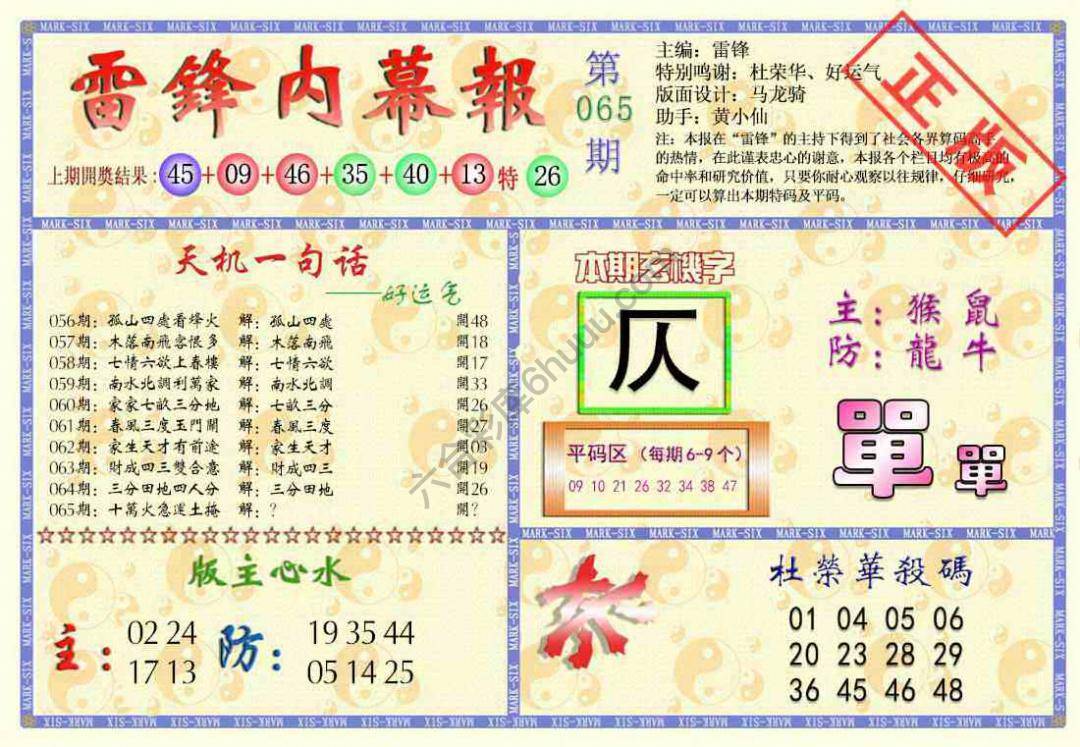 雷鋒内幕報
第065期
主编：雷锋
特别鸣谢：杜荣华、好运气
版面设计：马龙骑
助手：黄小仙
注：本报在“雷锋”的主持下得到了社会各界算码高手
的热情，在此谨表忠心的谢意，本报各个栏目均有极高的
命中率和研究价值，只要你耐心观察以往规律，仔细研究，
一定可以算出本期特码及平码。
正版
上期開獎結果：45+09+46+35+40+13特 26
天机一句话
——好运气
056期：孤山四處看烽火 解：孤山四處 開48
057期：木落南飛客恨多 解：木落南飛 開18
058期：七情六欲上春樓 解：七情六欲 開17
059期：南水北調利萬家 解：南水北調 開33
060期：家家七畝三分地 解：七畝三分 開26
061期：春風三度玉門關 解：春風三度 開27
062期：家生天才有前途 解：家生天才 開03
063期：財成四三雙合意 解：財成四三 開19
064期：三分田地四人分 解：三分田地 開26
065期：十萬火急運土掩 解：？ 開？
本期玄機字
仄
主：猴 鼠
防：龍 牛
平码区（每期6-9个）
09 10 21 26 32 34 38 47
單 單
版主心水
主：
02 24
17 13
防：
19 35 44
05 14 25
杀
杜榮華殺碼
01 04 05 06
20 23 28 29
36 45 46 48
六合彩库6huuu.com
MARK-SIX